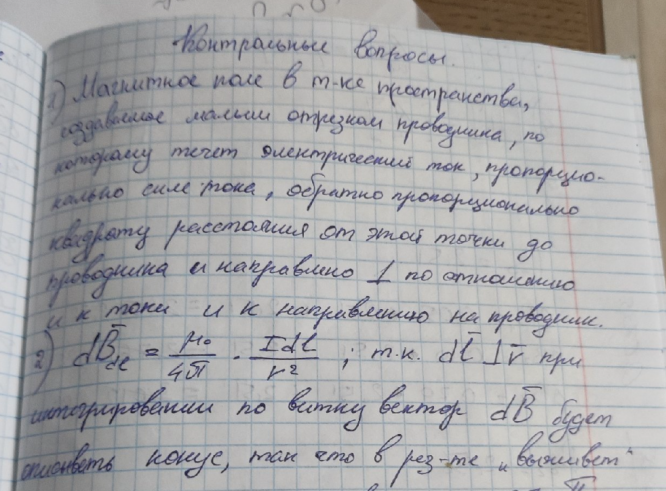 Контрольные вопросы.
1) Магнитное поле в т-ке пространства,
создаваемое малым отрезком проводника, по
которому течет электрический ток, пропорцио-
нально силе тока, обратно пропорционально
квадрату расстояния от этой точки до
проводника и направлено ⊥ по отношению
и к току и к направлению на проводник.
2) dB̄dl = μ₀/4π · Idl/r² ; т.к. dl̄ ⊥ r̄ при
интегрировании по витку вектор dB̄ будет
описывать конус, так что в рез-те "выживет"